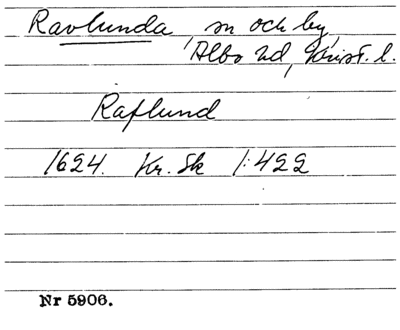 Ravlunda, sn och by,
Albo hd, Krist. l.
Raflund
1624. Kr. Sk 1:422
Nr 5906.